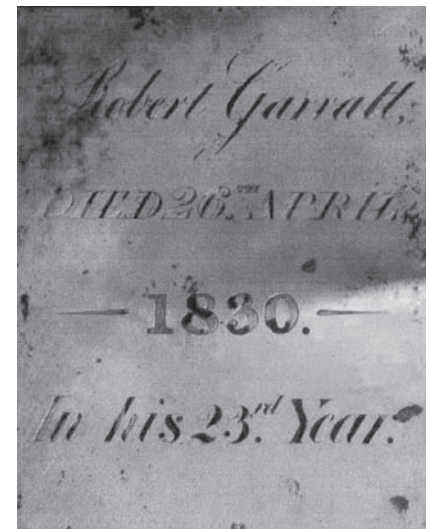 Robert Garratt,
DIED 26.TH APRIL
1830.
In his 23.rd Year.